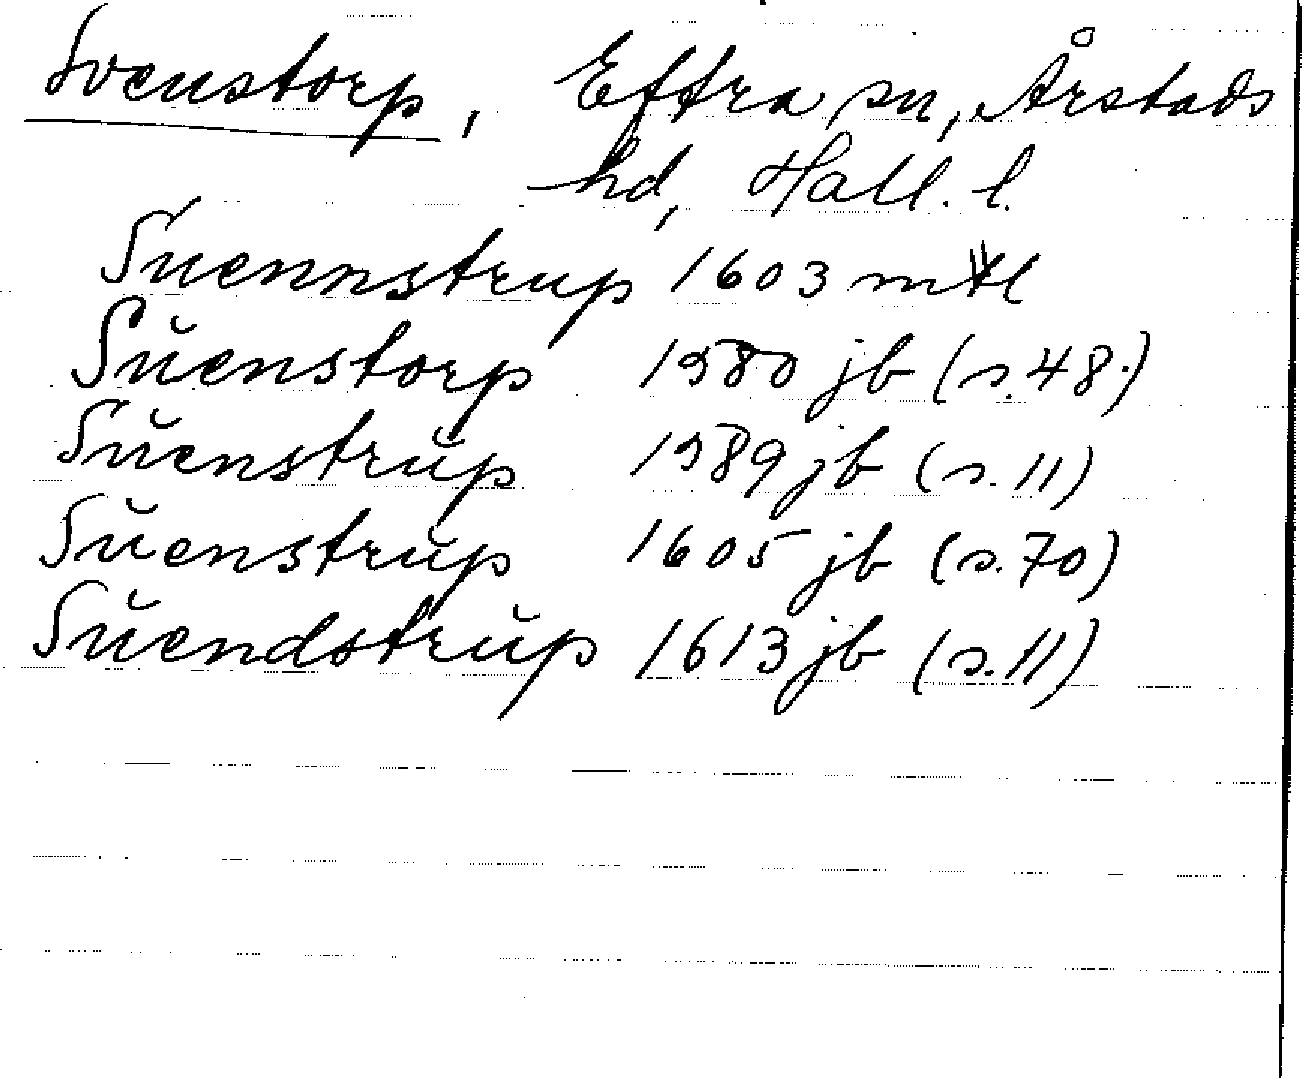 Svenstorp, Eftra sn, Årstads
hd, Hall. l.
Suennstrup 1603 mtl
Sŭenstorp 1580 jb (s. 48.)
Sŭenstrŭp 1589 jb (s. 11)
Sŭenstrŭp 1605 jb (s. 70)
Sŭendstrŭp 1613 jb (s. 11)